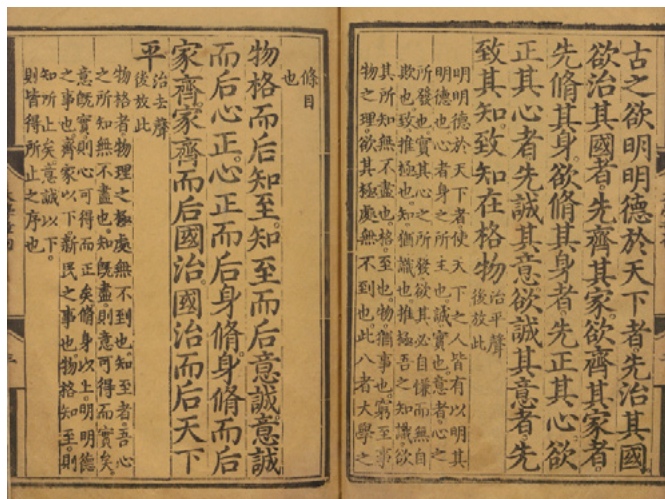 古之欲明明德於天下者先治其國
欲治其國者。先齊其家。欲齊其家者。
先脩其身。欲脩其身者。先正其心。欲
正其心者。先誠其意。欲誠其意者。先
致其知。致知在格物
治平聲
後放此
明明德於天下者使天下之人皆有以明其
明德也。心者身之所主也。誠實也。意者心之
所發也。實其心之所發。欲其必自慊而無自
欺也。致推極也。知猶識也。推極吾之知識。欲
其所知無不盡也。格至也。物猶事也。窮至事
物之理。欲其極處無不到也。此八者大學之
條目
也
物格而后知至。知至而后意誠。意誠
而后心正。心正而后身脩。身脩而后
家齊。家齊而后國治。國治而后天下
平
治去聲
後放此
物格者物理之極處無不到也。知至者。吾心
之所知無不盡也。知既盡則意可得而實矣。
意既實則心可得而正矣。脩身以上。明明德
之事也。齊家以下。新民之事也。物格知至。則
知所止矣。意誠以下。
則皆得所止之序也